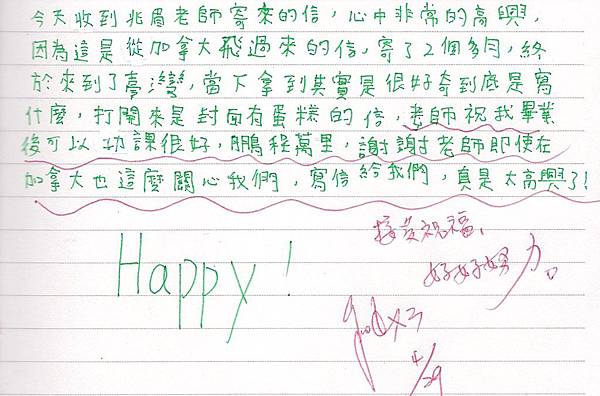 今天收到兆眉老師寄來的信，心中非常的高興，
因為這是從加拿大飛過來的信，寄了2個多月，終
於來到了臺灣，當下拿到其實是很好奇到底是寫
什麼，打開來是封面有蛋糕的信，老師祝我畢業
後可以功課很好，鵬程萬里，謝謝老師即使在
加拿大也這麼關心我們，寫信給我們，真是太高興了！
Happy！
接受祝福、
好好努力。
good x3
4/29